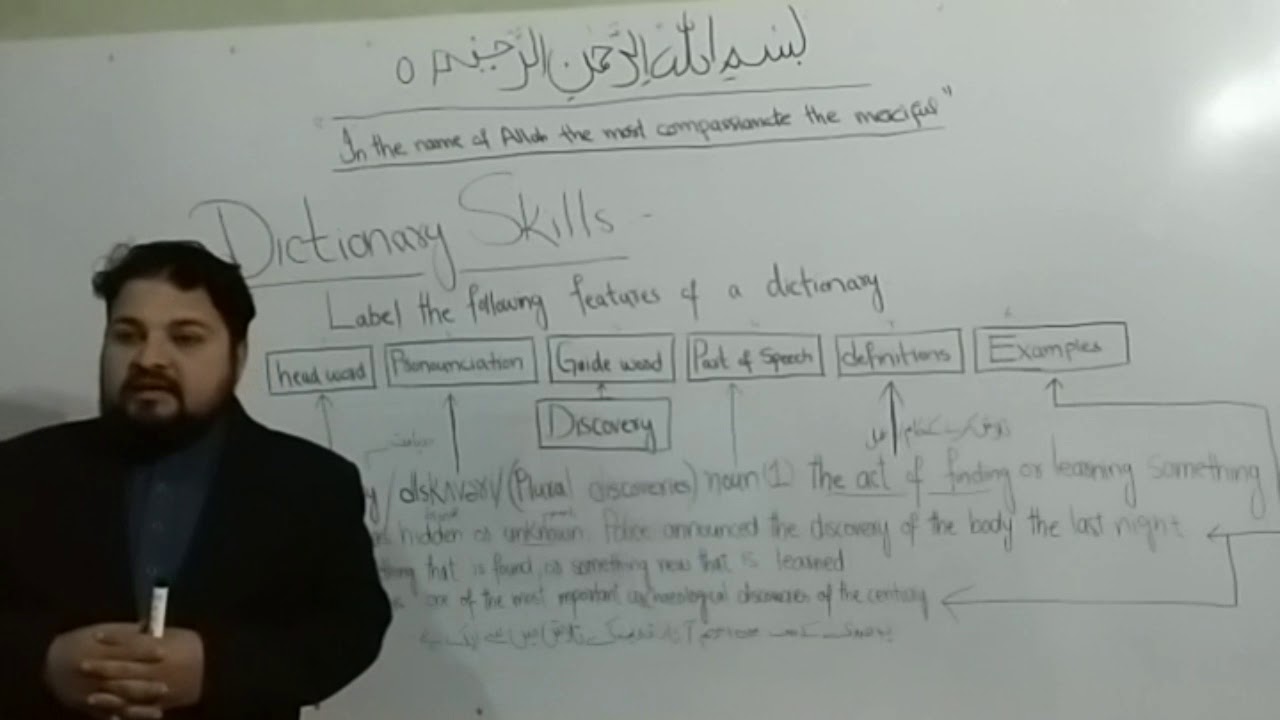 بسم الله الرحمن الرحيم ○
"In the name of Allah the most compassionate the merciful"
Dictionary Skills -
Label the following features of a dictionary
head word Pronounciation Guide word Part of Speech definitions Examples
Discovery
y /dIskʌvərI/ (Plural discoveries) noun (1) The act of finding or learning something
hidden or unknown. Police announced the discovery of the body the last night
thing that is found, or something new that is learned
one of the most important archaeological discoveries of the century